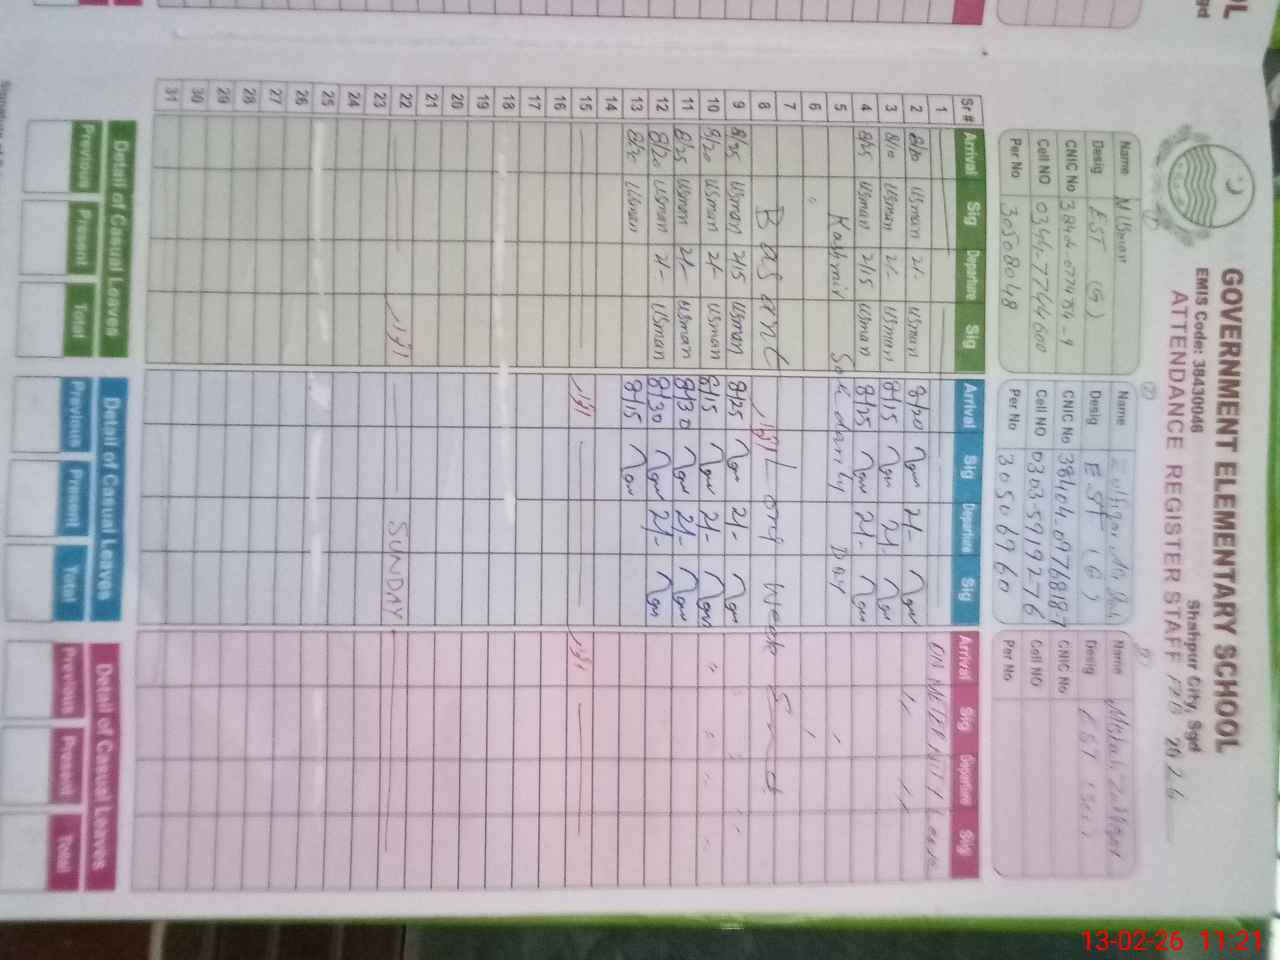 GOVERNMENT ELEMENTARY SCHOOL
Shahpur City, Sgd
EMIS Code: 38430046
ATTENDANCE REGISTER STAFF FEB 2026
Name M Usman
Desig EST (G)
CNIC No
Cell NO 0344-7744600
Per No 30508048
Name Zulfiqar Ali Shah
Desig EST (G)
CNIC No 38404-0976818-7
Cell NO 0303-5919276
Per No 30506960
Name
Desig EST
CNIC No
Cell NO
Per No
Sr # Arrival Sig Departure Sig Arrival Sig Departure Sig Arrival Sig Departure Sig
1 ON Leave
2 8/20 Usman 2/- Usman 8/20 2/- 〃 〃
3 8/10 Usman 2/- Usman 8/15 2/-
4 8/25 Usman 2/15 Usman 8/25 2/-
5 Kashmir DAY
6
7
8 Basant اتوار Long Week End
9 8/25 Usman 2/15 Usman 8/25 2/-
10 8/20 Usman 2/- Usman 8/15 2/-
11 8/25 Usman 2/- Usman 8/30 2/-
12 8/20 Usman 2/- Usman 8/30 2/-
13 8/20 Usman 8/15
14
15 اتوار اتوار
16
17
18
19
20
21
22 اتوار SUNDAY
23
24
25
26
27
28
29
30
31
Detail of Casual Leaves Detail of Casual Leaves Detail of Casual Leaves
Previous Present Total Previous Present Total Previous Present Total
13-02-26 11:21